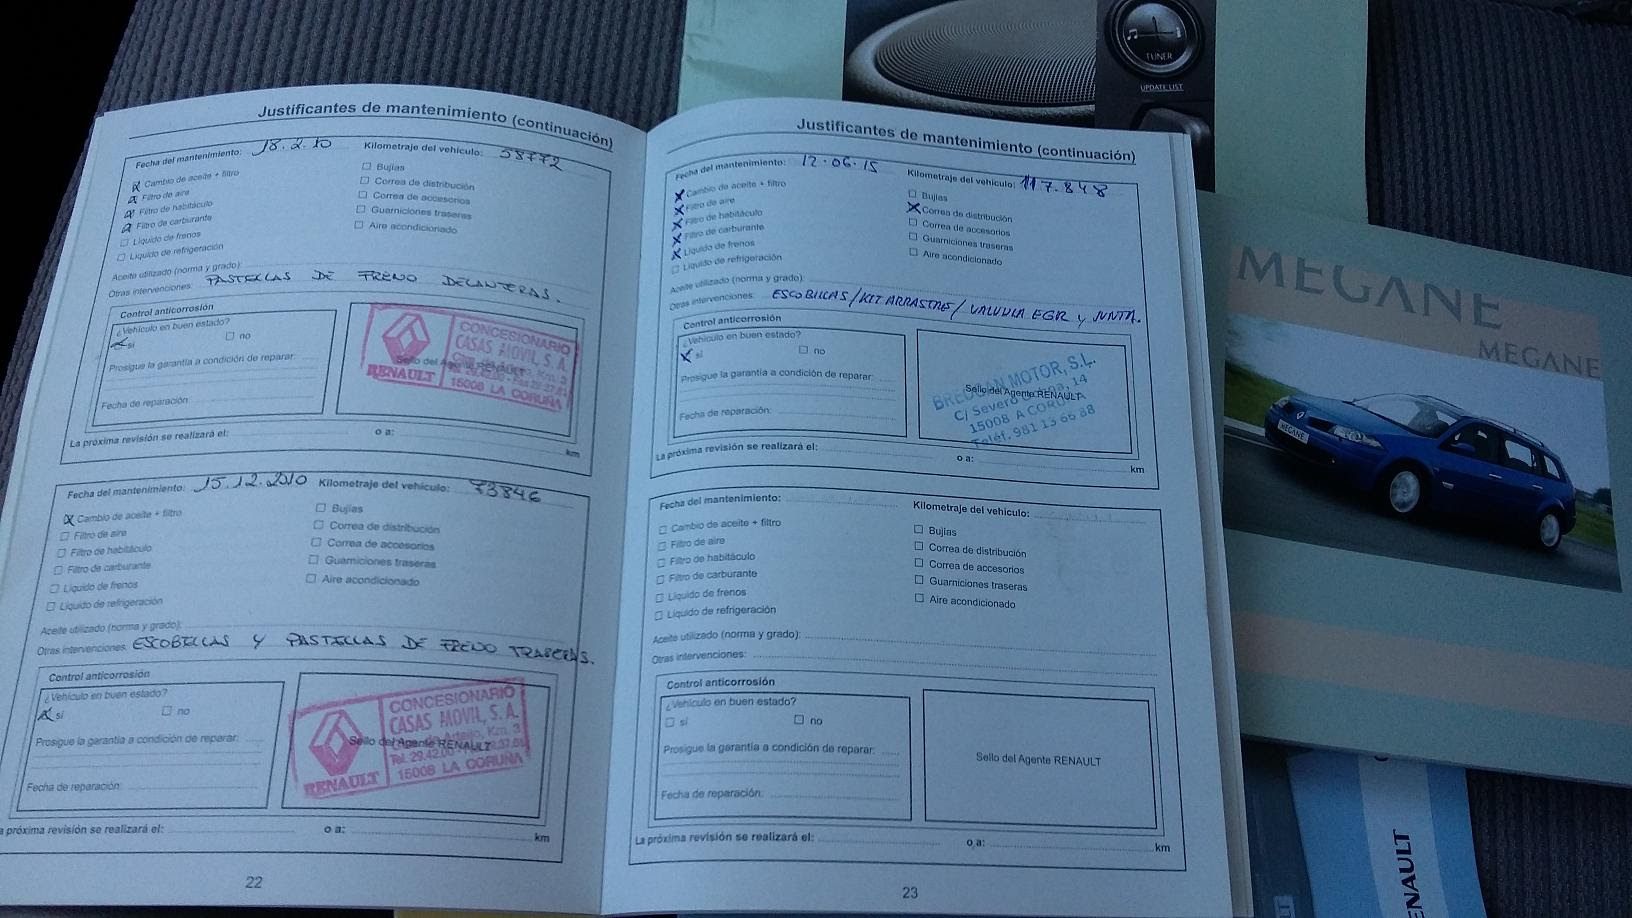 Justificantes de mantenimiento (continuación)
Fecha del mantenimiento: 18.2.10 Kilometraje del vehículo: 58772
Cambio de aceite + filtro
Filtro de aire
Filtro de habitáculo
Filtro de carburante
Líquido de frenos
Líquido de refrigeración
Bujías
Correa de distribución
Correa de accesorios
Guarniciones traseras
Aire acondicionado
Aceite utilizado (norma y grado):
Otras intervenciones: PASTILLAS DE FRENO DELANTERAS.
Control anticorrosión
¿Vehículo en buen estado?
sí no
Prosigue la garantía a condición de reparar:
Fecha de reparación:
Sello del Agente RENAULT
RENAULT
CONCESIONARIO
CASAS MOVIL, S. A.
15008 LA CORUÑA
La próxima revisión se realizará el: o a: km
Fecha del mantenimiento: 15.12.2010 Kilometraje del vehículo: 73846
Cambio de aceite + filtro
Filtro de aire
Filtro de habitáculo
Filtro de carburante
Líquido de frenos
Líquido de refrigeración
Bujías
Correa de distribución
Correa de accesorios
Guarniciones traseras
Aire acondicionado
Aceite utilizado (norma y grado):
Otras intervenciones: ESCOBILLAS Y PASTILLAS DE FRENO TRASERAS.
Control anticorrosión
¿Vehículo en buen estado?
sí no
Prosigue la garantía a condición de reparar:
Fecha de reparación:
Sello del Agente RENAULT
RENAULT
CONCESIONARIO
CASAS MOVIL, S. A.
15008 LA CORUÑA
a próxima revisión se realizará el: o a: km
22
Justificantes de mantenimiento (continuación)
Fecha del mantenimiento: 12.06.15 Kilometraje del vehículo: 117.848
Cambio de aceite + filtro
Filtro de aire
Filtro de habitáculo
Filtro de carburante
Líquido de frenos
Líquido de refrigeración
Bujías
Correa de distribución
Correa de accesorios
Guarniciones traseras
Aire acondicionado
Aceite utilizado (norma y grado):
Otras intervenciones: ESCOBILLAS/KIT ARRASTRE/ VALVULA EGR Y JUNTA.
Control anticorrosión
¿Vehículo en buen estado?
sí no
Prosigue la garantía a condición de reparar:
Fecha de reparación:
MOTOR, S.L.
Sello del Agente RENAULT
C/ Severo Ochoa, 14
15008 A CORUÑA
Teléf. 981 13 66 88
La próxima revisión se realizará el: o a: km
Fecha del mantenimiento: Kilometraje del vehículo:
Cambio de aceite + filtro
Filtro de aire
Filtro de habitáculo
Filtro de carburante
Líquido de frenos
Líquido de refrigeración
Bujías
Correa de distribución
Correa de accesorios
Guarniciones traseras
Aire acondicionado
Aceite utilizado (norma y grado):
Otras intervenciones:
Control anticorrosión
¿Vehículo en buen estado?
sí no
Prosigue la garantía a condición de reparar:
Fecha de reparación:
Sello del Agente RENAULT
La próxima revisión se realizará el: o a: km
23
TUNER
UPDATE LIST
MEGANE
MEGANE
MEGANE
ENAULT